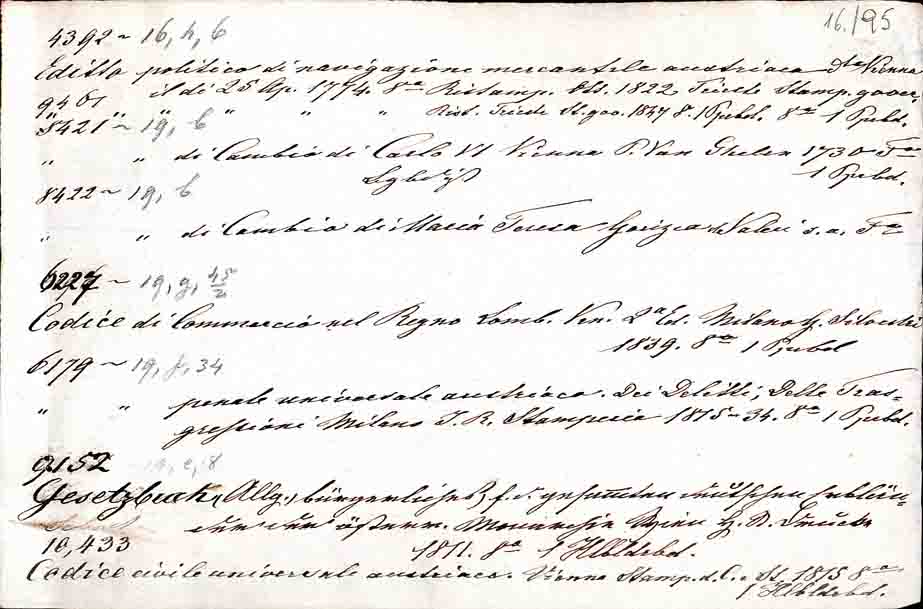 16./95
4392 ~ 16, h, 6
Editto politico di navigazione mercantile austriaca dto Vienna
il di 25 Ap. 1774. 8º Ristamp. 1822, Trieste Stamp. gover.
9401 " " " " " Rist. Trieste St. gov. 1847 8. 1 Ppbd. 8º 1 Ppbd.
8421 ~ 19, b
" " di Cambio di Carlo VI Vienna P. Van Ghelen 1730 Fº
1 Ppbd.
8422 ~ 19, b
" " di Cambio di Maria Teresa Gorizia Valeri s. a. Fº
6227 ~ 19, g, 45/2
Codice di Commercio nel Regno Lomb. Ven. 2ª Ed. Milano G. Silvestri
1839. 8º 1 Ppbd
6179 ~ 19, g, 34
" " penale universale austriaco. Dei Delitti; Delle Tras-
gressioni Milano I. R. Stamperia 1815-34. 8º 1 Ppbd.
9152 19, e, 8
Gesetzbuch, (Allg.) bürgerliches, f. d. gesammten deutschen Erblän-
der der österr. Monarchie Wien H. D. Druck
1811. 8º 1 Hlbldrbd.
10,433
Codice civile universale austriaco. Vienna Stamp. d. C. e St. 1815 8º
1 Hlbldrbd.